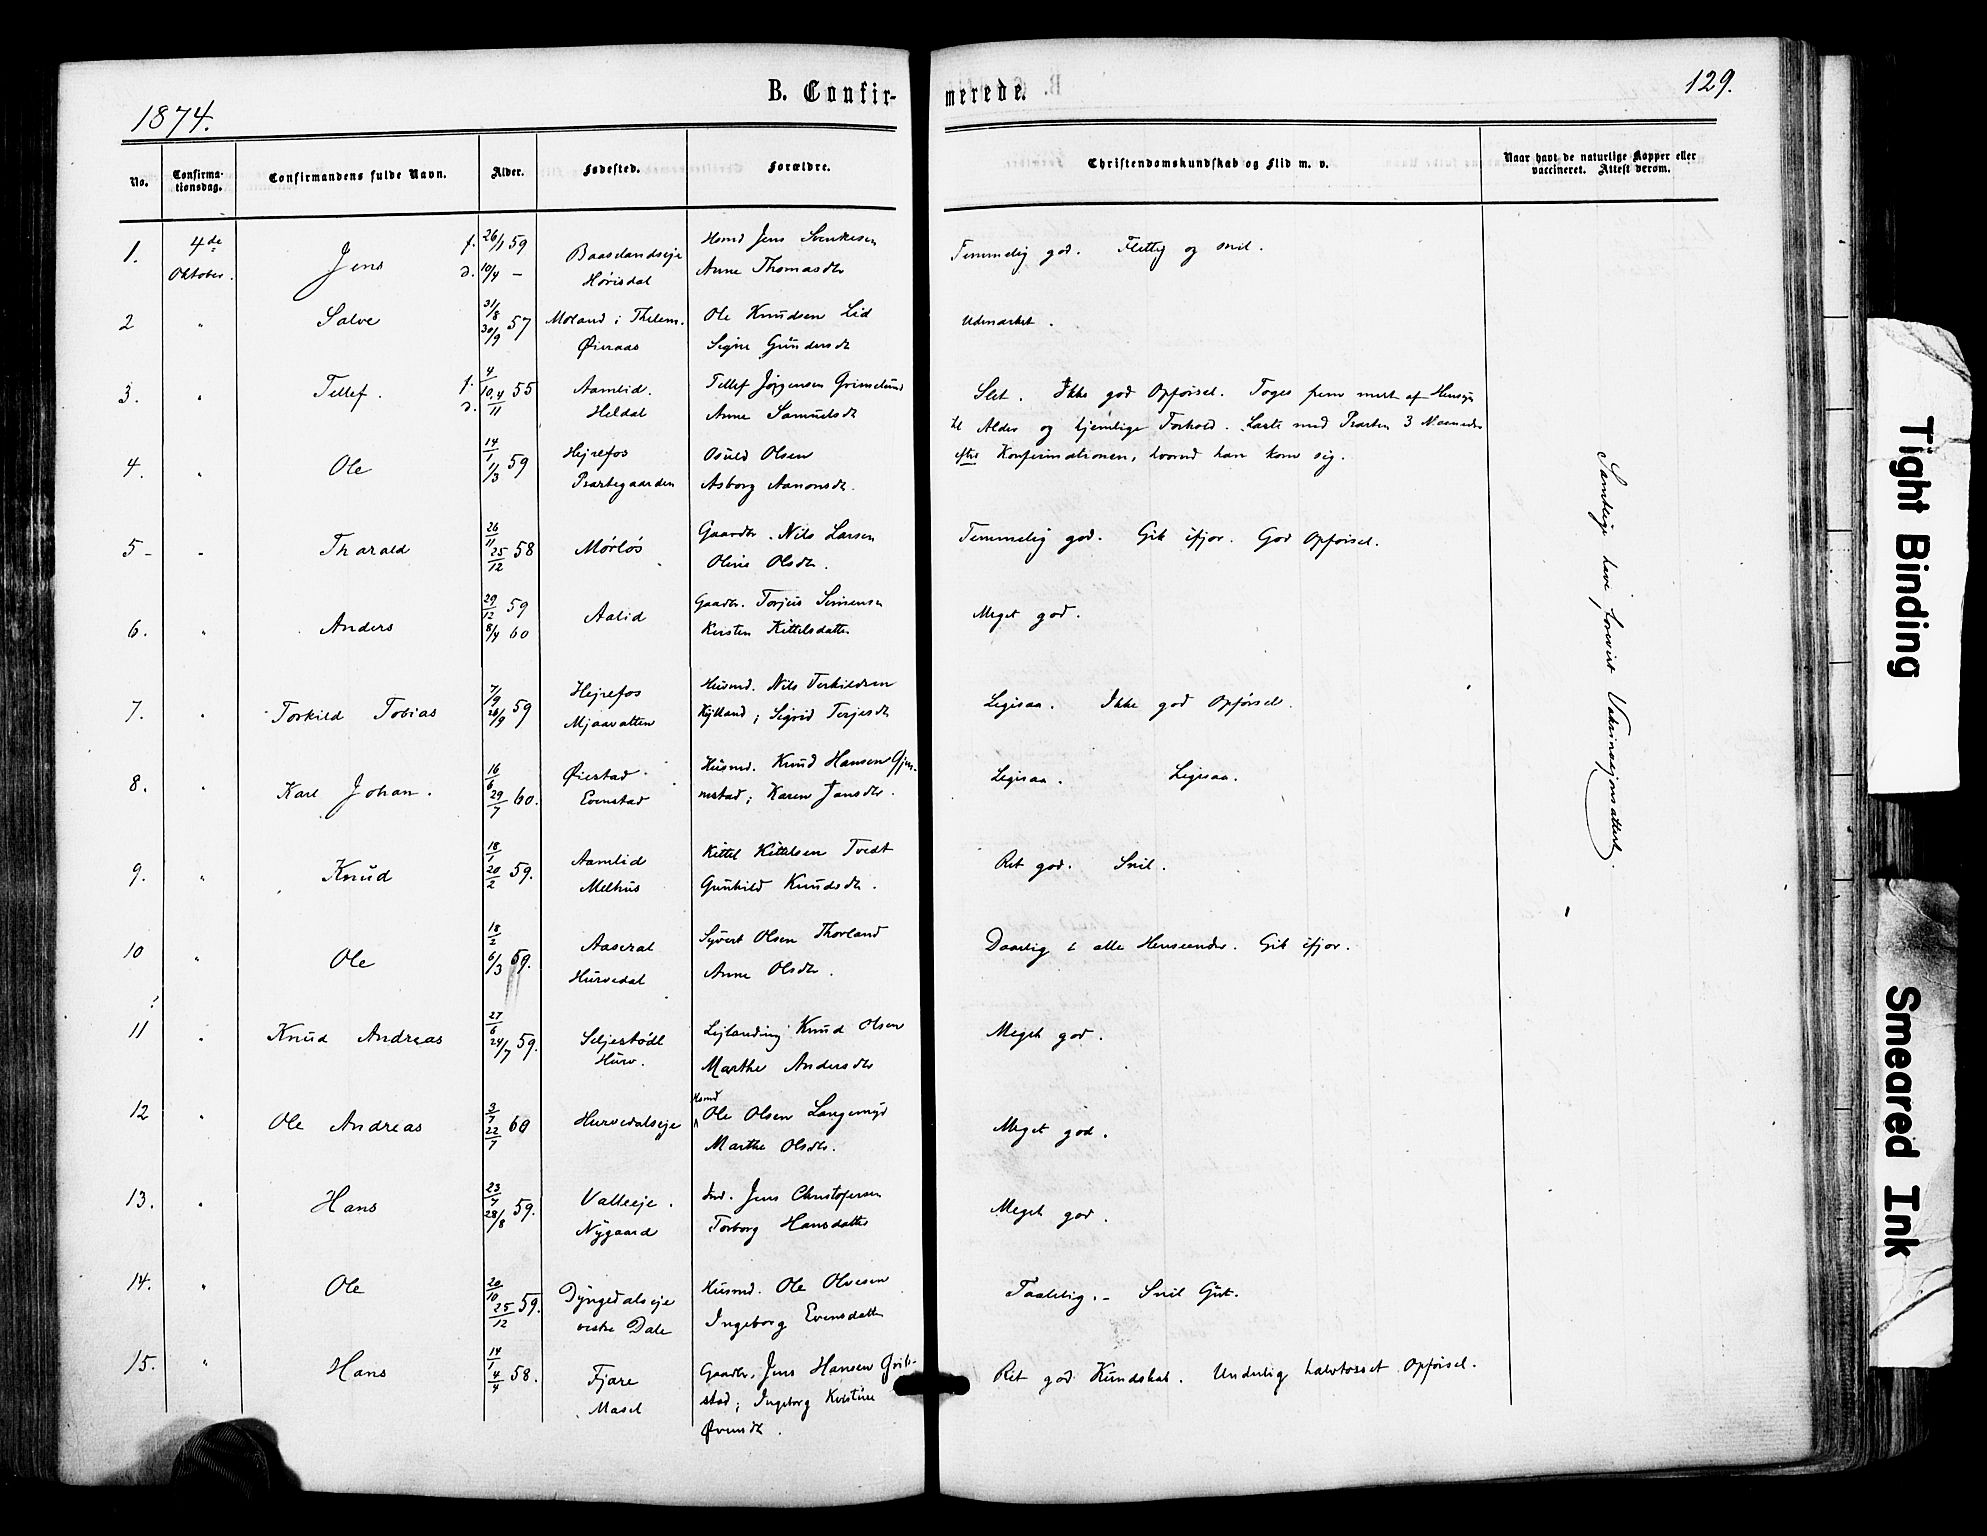 1874.
B. Confir-
merede.
129.
No.
Confirma-
tionsdag.
Confirmandens fulde Navn.
Alder.
Fødested.
Forældre.
Christendomskundskab og Flid m. v.
Naar havt de naturlige Kopper eller
vaccineret. Attest derom.
1. 4de Oktober. Jens f. 26/1 59 d. 10/4 –
Baaselandseje
Hørisdal
Hsmd Jens
Anne Thomasdtr
Temmelig god. Flittig og snil.
2 " Salve 31/8 30/9 57
Moland i Thelem.
Øieraas
Ole Knudsen Lid
Signe Gundersdtr
Udmærket.
3. " Tellef. f. 4/10 d. 4/11 55
Aamlid.
Heldal
Tellef Jørgensen Grimelund
Anne Samuelsdtr
Slet. Ikke god Opførsel. Toges frem mest af Hensyn
til Alder og hjemlige Forhold. Læste med Præsten 3 Maaneder
efter Konfirmationen, hvorved han kom sig.
4. " Ole 14/1 11/3 59
Hejrefos
Præstegaarden
Osuld Olsen
Asborg Aanonsdtr.
5 – " Tharald 26/11 25/12 58
Mørløs
Gaardbr. Nils Larsen
Oline Olsdtr.
Temmelig god. Gik ifjor. God Opførsel.
6. " Anders 29/12 59 8/4 60
Aalid
Gaardbr. Torjus Simensen
Kirsten Kittelsdatter
Meget god.
7. " Torkild Tobias 7/9 26/9 59
Hejrefos
Mjaavatten
Husmd. Nils Terkildsen
Kylland; Sigrid Terjesdtr
Ligesaa. Ikke god Opførsel.
8. " Karl Johan. 16/6 29/7 60.
Øiestad
Evenstad
Husmd. Knud Hansen
Karen Jansdtr.
Ligesaa. Ligesaa.
9. " Knud 18/1 20/2 59.
Aamlid
Melhus
Kittel Kittelsen Tvedt
Gunhild Knudsdtr.
Ret god. Snil.
10 " Ole 18/2 6/3 59.
Aaseral
Hurvedal
Syvert Olsen Thorland
Anne Olsdtr.
Daarlig i alle Henseender. Gik ifjor.
11 " Knud Andreas 27/6 24/7 59.
Seljestødl
Hurv.
Lejlænding Knud Olsen
Marthe Andersdtr
Meget god.
12 " Ole Andreas 3/7 22/7 60
Hurvedalseje
Hsmd
Ole Olsen Langemyr
Marthe Olsdtr.
Meget god.
13. " Hans 23/7 28/8 59.
Valleeje.
Nygaard
Ind. Jens Christofersen
Torborg Hansdatter
Meget god.
14. " Ole 20/10 25/12 59.
Dyngedalseje
vestre Dale
Husmd. Ole Olvesen
Ingeborg Evensdatter
Taalelig. – Snil Gut.
15. " Hans 14/1 4/4 58.
Fjære
Masel
Gaardbr. Jens Hansen
stad; Ingeborg Kirstine
Ret god Kundskab. Underlig halvtosset Opførsel.
Samtlige have forevist Vaksinasjonsattest.
Tight Binding
Smeared Ink